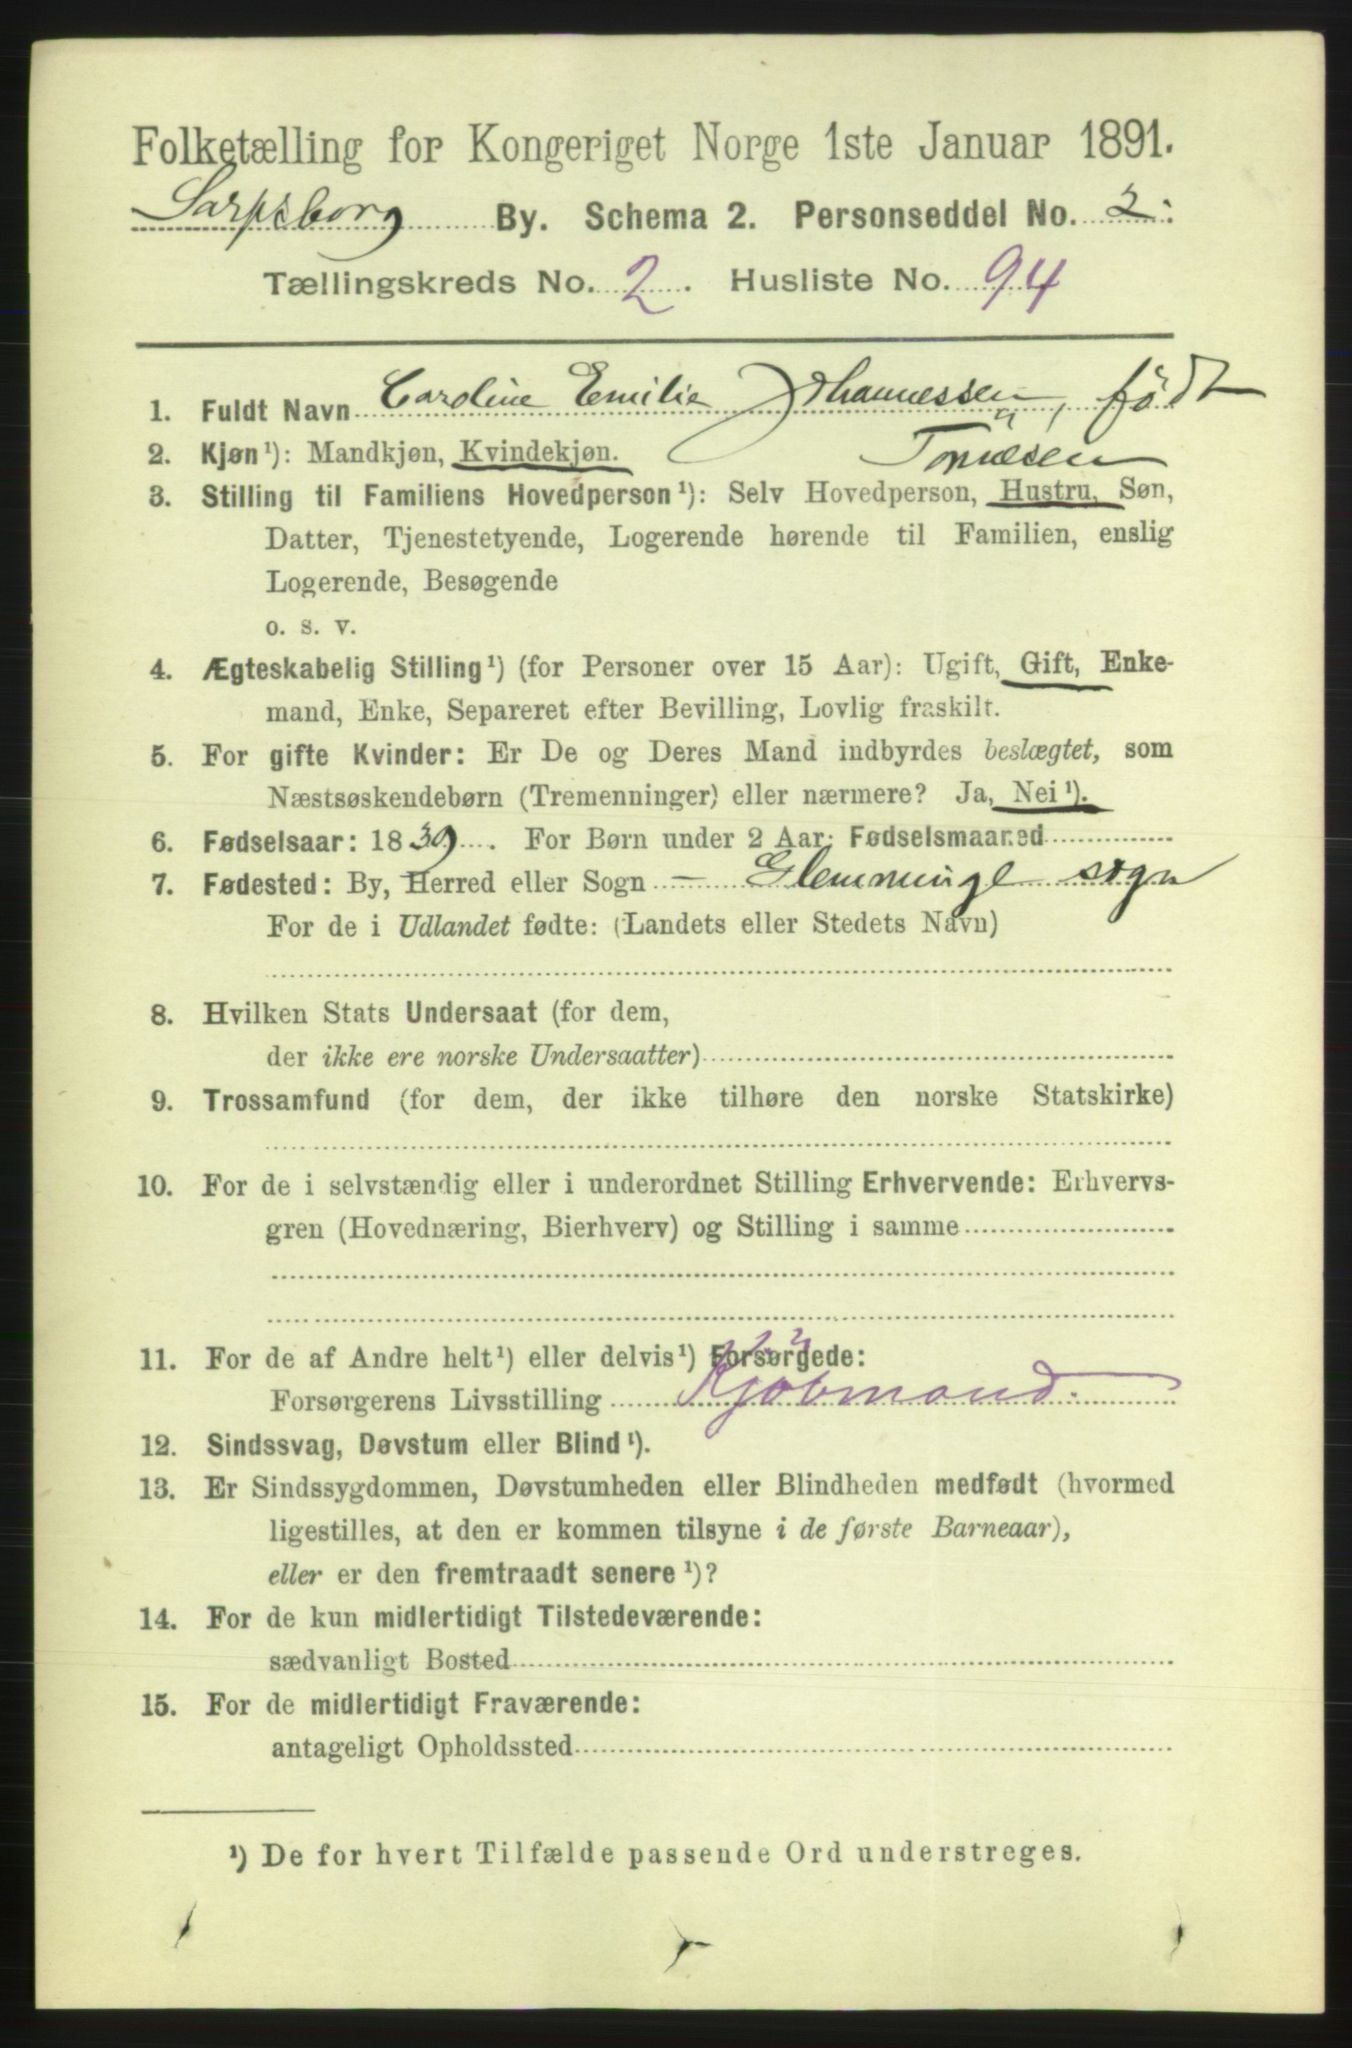 Folketælling for Kongeriget Norge 1ste Januar 1891.
Sarpsborg By. Schema 2. Personseddel No. 2.
Tællingskreds No. 2. Husliste No. 94
1. Fuldt Navn Caroline Emilie Johannessen, født
2. Kjøn¹): Mandkjøn, Kvindekjøn.
3. Stilling til Familiens Hovedperson¹): Selv Hovedperson, Hustru, Søn,
Datter, Tjenestetyende, Logerende hørende til Familien, enslig
Logerende, Besøgende
o. s. v.
4. Ægteskabelig Stilling¹) (for Personer over 15 Aar): Ugift, Gift, Enke-
mand, Enke, Separeret efter Bevilling, Lovlig fraskilt.
5. For gifte Kvinder: Er De og Deres Mand indbyrdes beslægtet, som
Næstsøskendebørn (Tremenninger) eller nærmere? Ja, Nei¹).
6. Fødselsaar: 1839. For Børn under 2 Aar: Fødselsmaaned
7. Fødested: By, Herred eller Sogn — Glemminge sogn
For de i Udlandet fødte: (Landets eller Stedets Navn)
8. Hvilken Stats Undersaat (for dem,
der ikke ere norske Undersaatter)
9. Trossamfund (for dem, der ikke tilhøre den norske Statskirke)
10. For de i selvstændig eller i underordnet Stilling Erhvervende: Erhvervs-
gren (Hovednæring, Bierhverv) og Stilling i samme
11. For de af Andre helt¹) eller delvis¹) Forsørgede:
Forsørgerens Livsstilling Kjøbmand.
12. Sindssvag, Døvstum eller Blind¹).
13. Er Sindssygdommen, Døvstumheden eller Blindheden medfødt (hvormed
ligestilles, at den er kommen tilsyne i de første Barneaar),
eller er den fremtraadt senere¹)?
14. For de kun midlertidigt Tilstedeværende:
sædvanligt Bosted
15. For de midlertidigt Fraværende:
antageligt Opholdssted
¹) De for hvert Tilfælde passende Ord understreges.